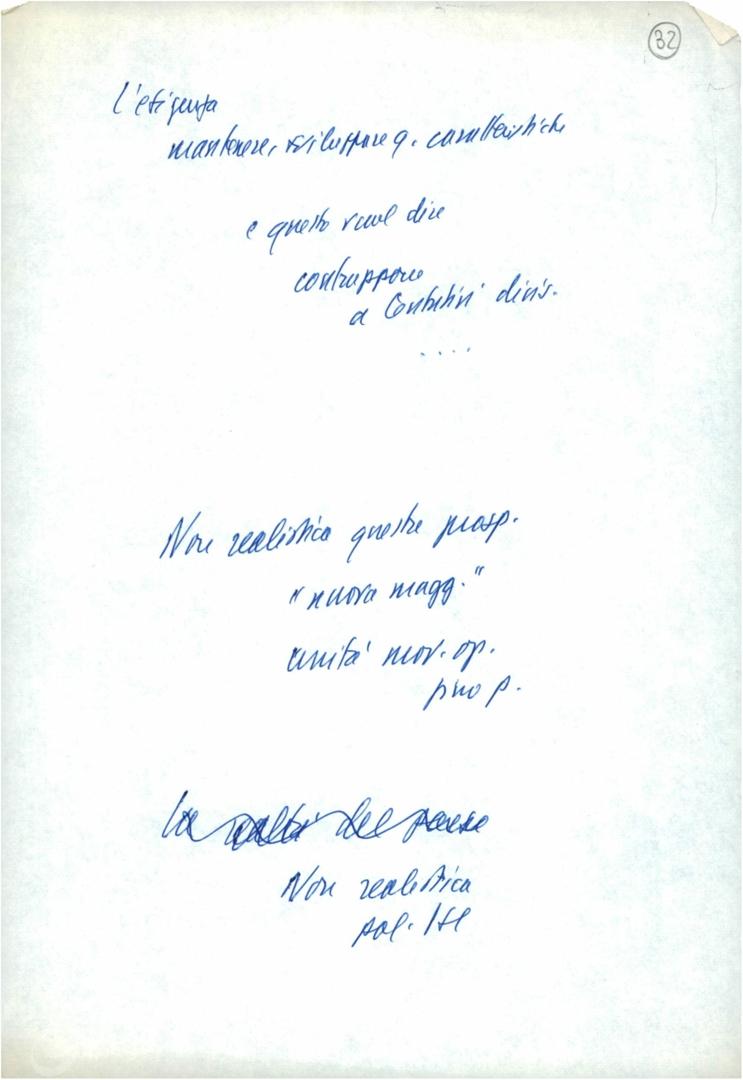 32
L'esigenza
mantenere, sviluppare q. caratteristiche
e questo vuol dire
contrapporre
a tentativi divis.
....
Non realistica questa prosp.
"nuova magg."
unità mov. op.
fino p.
La realtà del paese
Non realistica
pol.